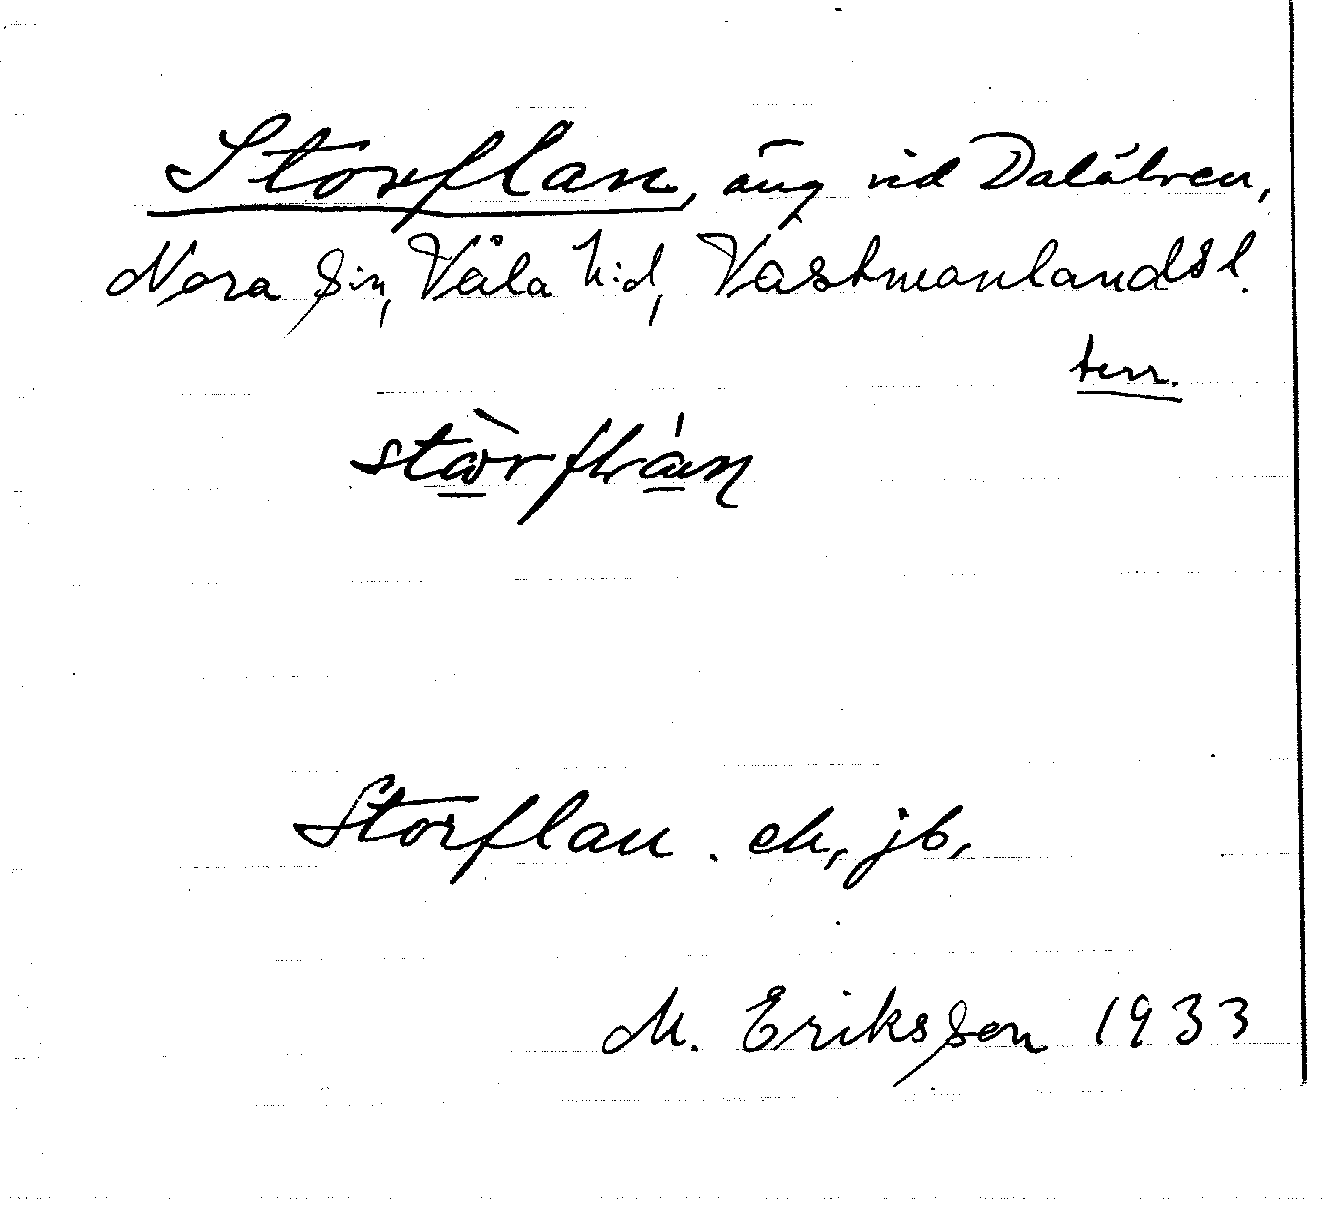 Storflan, äng vid Dalälven,
Nora sn, Våla hd, Västmanlands l.
terr.
Storflan. ek, jb,
M. Eriksson 1933